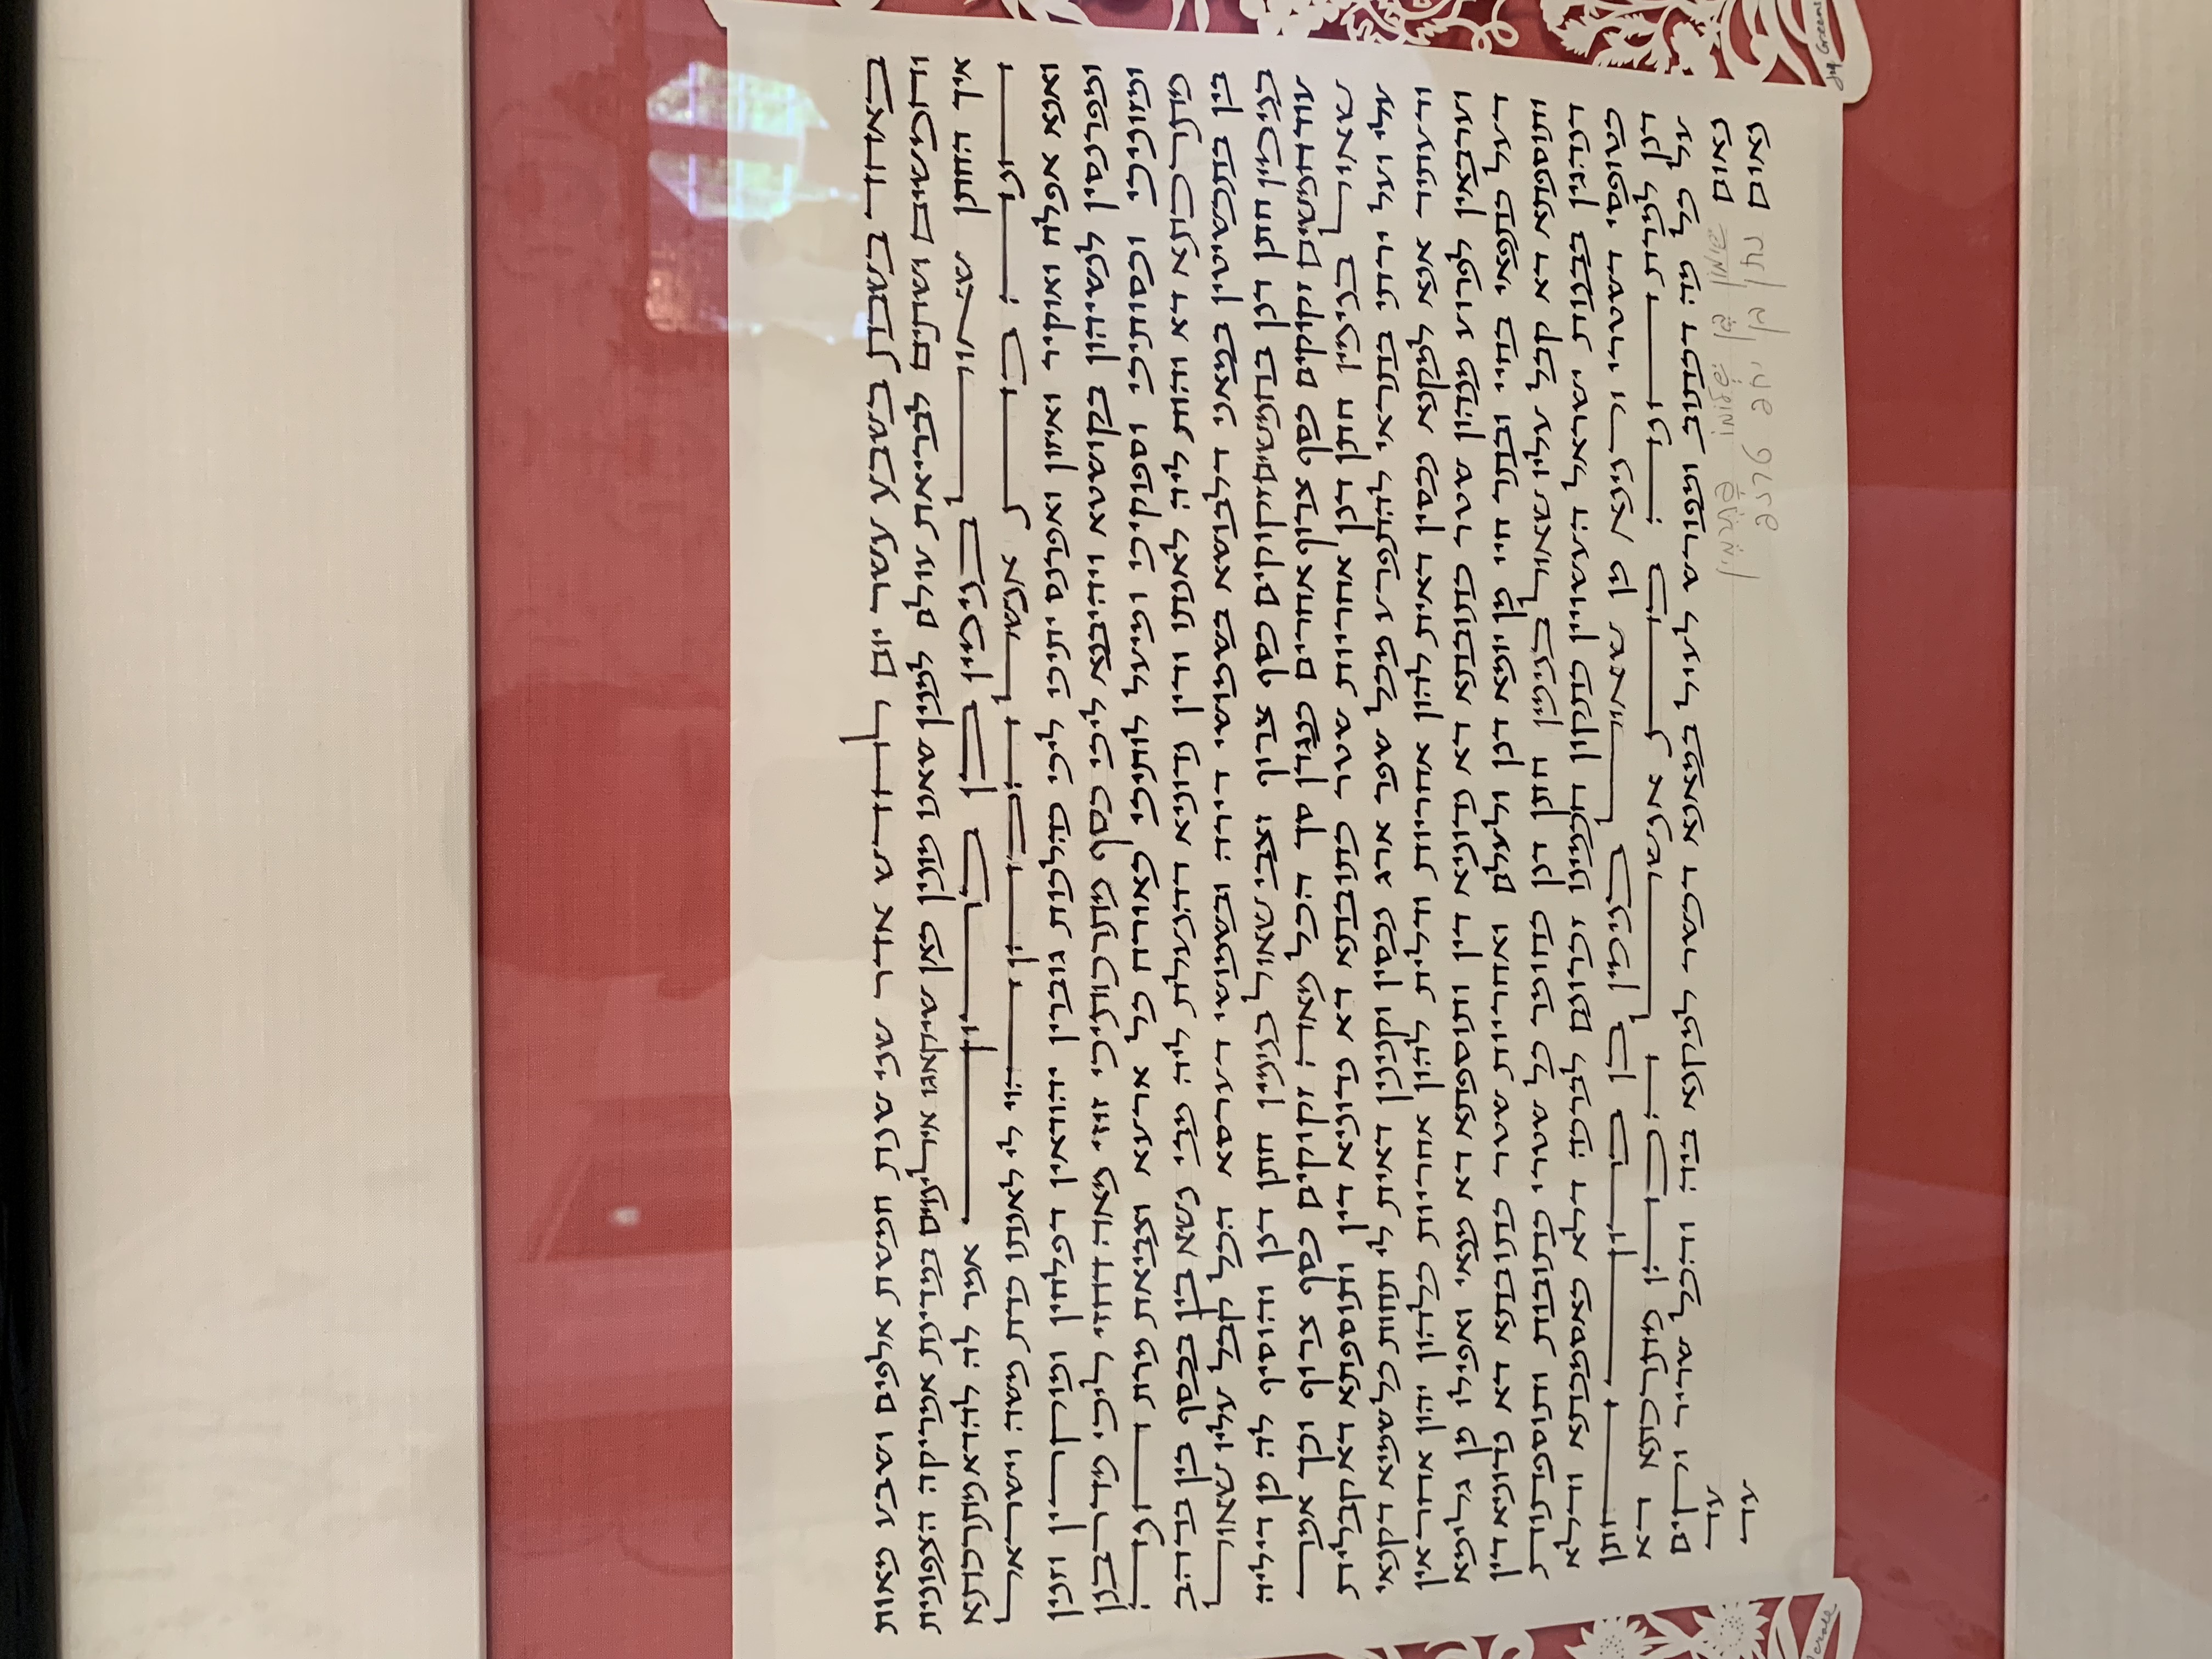 באחד בשבת בשבעה עשר יום לחדש אדר שני שנת חמשת אלפים ושבע מאות
וחמשים ושתים לבריאת עולם למנין שאנו מונין כאן שיקאגו אילינוים במדינת אמריקה הצפונית
איך החתן שאול בנימין בן אמר לה להדא מתרכתא
הוי לי לאנתו כדת משה וישראל
ואנא אפלח ואוקיר ואיזון ואפרנס יתיכי ליכי כהלכות גוברין יהודאין דפלחין ומוקרין וזנין
ומפרנסין לנשיהון בקושטא ויהיבנא ליכי כסף מתרכותיכי זוזי מאה דחזי ליכי מדרבנן
ומזוניכי וכסותיכי וספוקיכי ומיעל לותיכי כאורח כל ארעא וצביאת מרת
מתרכתא דא והות ליה לאנתו ודין נדוניא דהנעלת ליה מבי נשא בין בכסף בין בדהב
בין בתכשיטין במאני דלבושא בשמושי דירה ובשמושי דערסא הכל קבל עליו שאול
בנימין חתן דנן בחמשים זקוקים כסף צרוף וצבי שאול בנימין חתן דנן והוסיף לה מן דיליה
עוד חמשים זקוקים כסף צרוף אחרים כנגדן סך הכל מאה זקוקים כסף צרוף וכך אמר
שאול בנימין חתן דנן אחריות שטר כתובתא דא נדוניא דין ותוספתא דא קבלית
עלי ועל ירתי בתראי להתפרע מכל שפר ארג נכסין וקנינין דאית לי תחות כל שמיא דקנאי
ודעתיד אנא למקנא נכסין דאית להון אחריות ודלית להון אחריות כלהון יהון אחראין
וערבאין לפרוע מנהון שטר כתובתא דא נדוניא דין ותוספתא דא מנאי ואפילו מן גלימא
דעל כתפאי בחיי ובתר חיי מן יומא דנן ולעלם ואחריות שטר כתובתא דא נדוניא דין
ותוספתא דא קבל עליו שאול בנימין חתן דנן כחומר כל שטרי כתובות ותוספתות
דנהגין בבנות ישראל העשויין כתקון חכמינו זכרונם לברכה דלא כאסמכתא ודלא
כטופסי דשטרי וקנינא מן שאול בנימין בן חתן
דנן למרת מתרכתא דא
על כל מה דכתוב ומפורש לעיל במאנא דכשר למקנא ביה והכל שריר וקים
נאום שמעון בן עד
נאום נתן בן עד